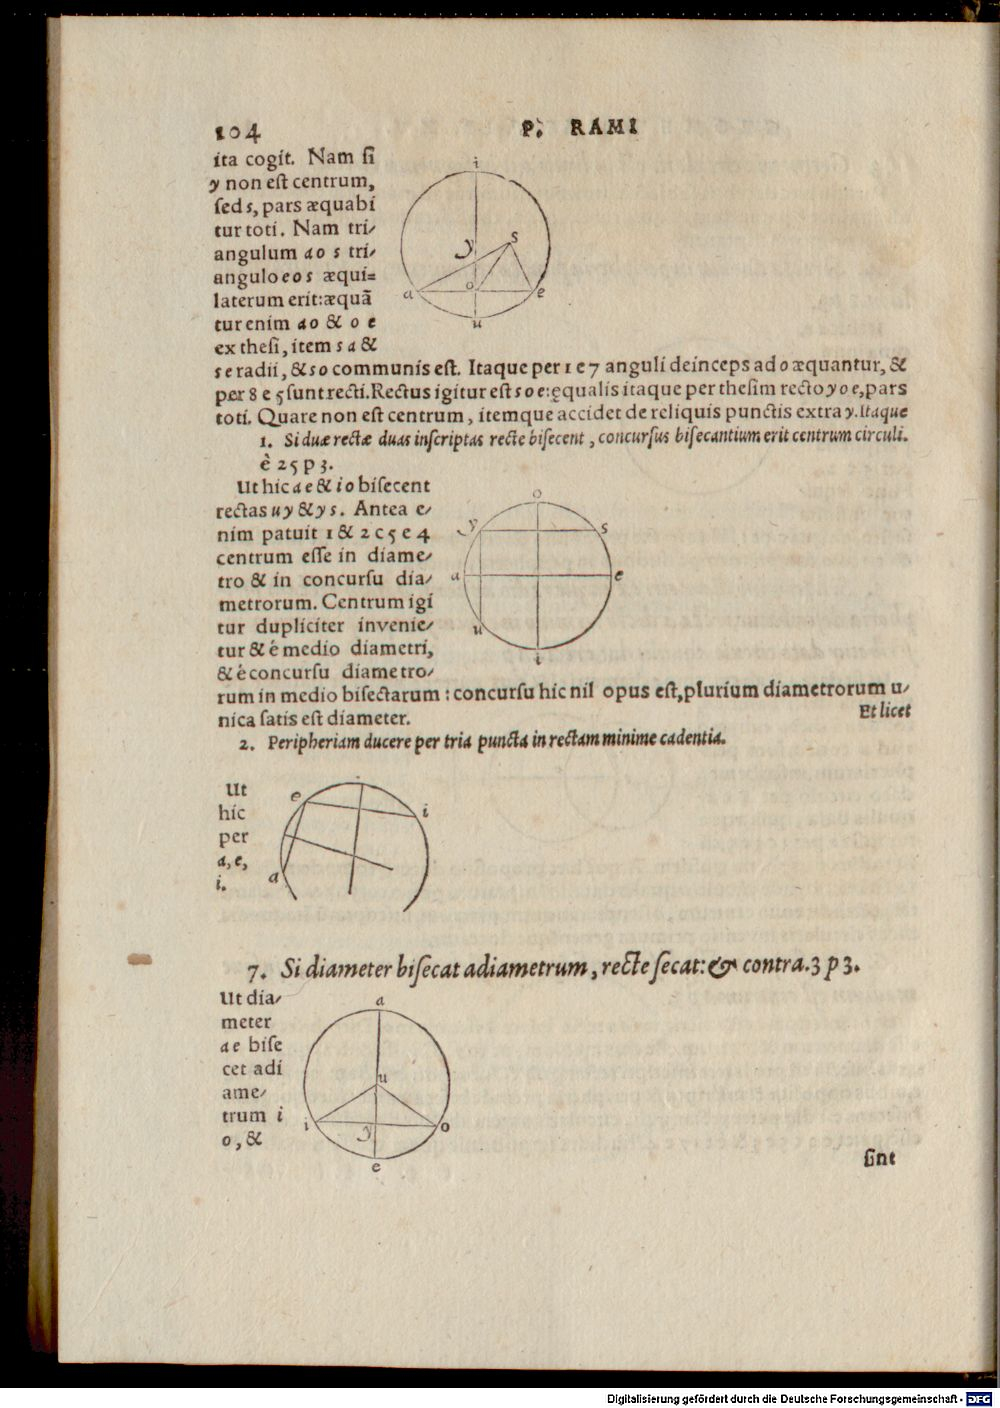 104
P. RAMI
ita cogit. Nam si
y non est centrum,
sed s, pars æquabi
tur toti. Nam tri-
angulum a o s tri-
angulo e o s æqui=
laterum erit: æquã
tur enim a o & o e
ex thesi, item s a &
s e radii, & s o communis est. Itaque per 1 e 7 anguli deinceps ad o æquantur, &
per 8 e 5 sunt recti. Rectus igitur est s o e: ęqualis itaque per thesim recto y o e, pars
toti. Quare non est centrum, itemque accidet de reliquis punctis extra y. Itaque
1. Si duæ rectæ duas inscriptas recte bisecent, concursus bisecantium erit centrum circuli.
è 25 p 3.
Ut hic a e & i o bisecent
rectas u y & y s. Antea e-
nim patuit 1 & 2 c 5 e 4
centrum esse in diame-
tro & in concursu dia-
metrorum. Centrum igi
tur dupliciter invenie-
tur & è medio diametri,
& è concursu diametro-
rum in medio bisectarum: concursu hic nil opus est, plurium diametrorum u-
nica satis est diameter.
Et licet
2. Peripheriam ducere per tria puncta in rectam minime cadentia.
Ut
hic
per
a, e,
i.
7. Si diameter bisecat adiametrum, recte secat: & contra. 3 p 3.
Ut dia-
meter
a e bise
cet adi
ame-
trum i
o, &
sint
i
y
s
a
o
e
u
o
y
s
a
e
u
i
e
i
a
a
u
i
y
o
e
Digitalisierung gefördert durch die Deutsche Forschungsgemeinschaft - DFG